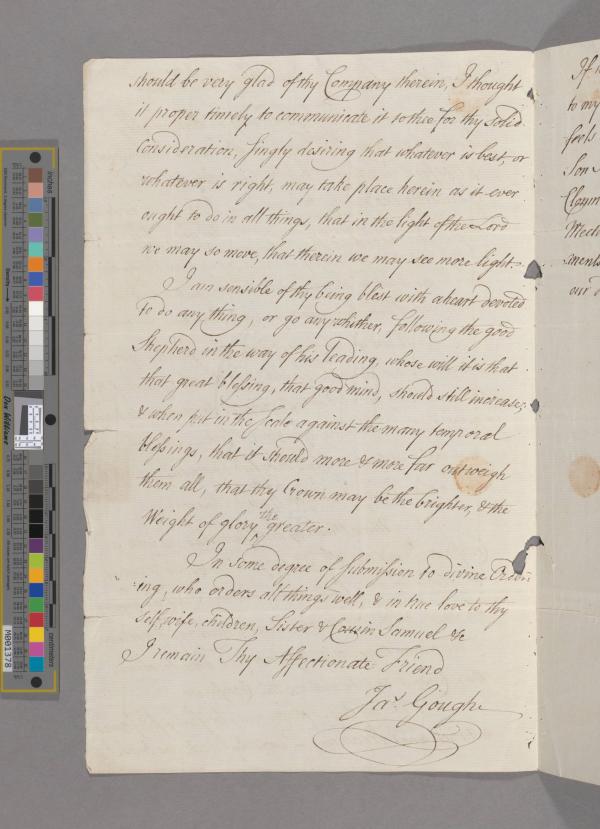 should be very glad of thy Company therein, I thought
it proper timely to communicate it to thee for thy solid
Consideration, singly desiring that whatever is best, or
whatever is right, may take place herein as it ever
ought to do in all things, that in the light of the Lord
we may so move, that therein we may see more light.
I am sensible of thy being blest with a heart devoted
to do any thing, or go any whither, following the good
Shepherd in the way of his leading, whose will it is that
that great blessing, that good mind, should still increase;
& when put in the Scale against the many temporal
blessings, that it should more & more far outweigh
them all, that thy Crown may be the brighter, & the
Weight of glory the greater.
In some degree of submission to divine Ordering,
ing, who orders all things well, & in true love to thy
self, wife, children, Sister & Cousin Samuel &c
I remain Thy Affectionate Friend
Jas. Gough
If
to my
feels
Son
Claym
Meeti
ments
our
inches
centimeters
Don Williams
M001378